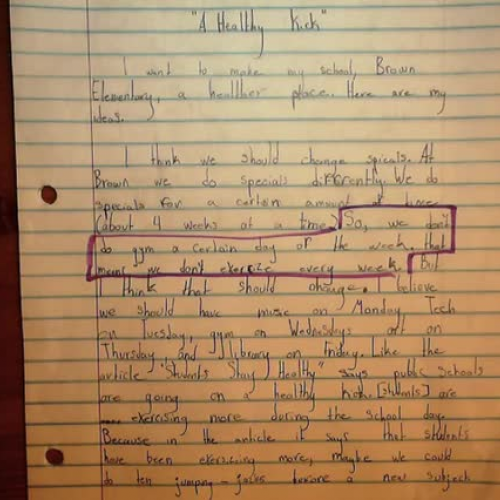 "A Healthy Kick"
I want to make my school, Brown
Elementary, a healther place. Here are my
ideas.
I think we should change spicals. At
Brown we do specials differently. We do
specials for a certain amount of time
(about 4 weeks at a time.) So, we don't
do gym a certain day of the week, that
mean we don't exercize every week. But
I think that should change. I believe
we should have music on Monday, Tech
on Tuesday, gym on Wednesdays art on
Thursday, and library on Friday. Like the
article "Students Stay Healthy" says public schools
are going on a healthy kick. [Students] are
exercising more during the school day.
Because in the article it says that students
have been exercising more, maybe we could
do ten jumping-jacks before a new subject